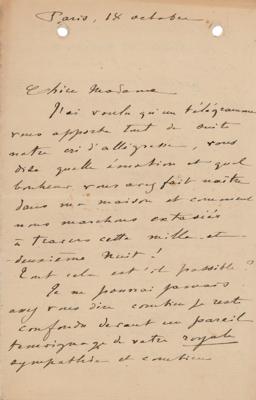 Paris, 14 octobre
Chère Madame
J'ai voulu qu'un télégramme
vous apporte tout de suite
notre cri d'allégresse, vous
dise quelle émotion et quel
bonheur vous avez fait naître
dans ma maison et comment
nous marchons extasiés
à travers cette mille et
deuxième nuit!
Tout cela est-il possible?
Je ne pourrai jamais
assez vous dire combien je reste
confondu devant un pareil
témoignage de votre royale
sympathie et combien